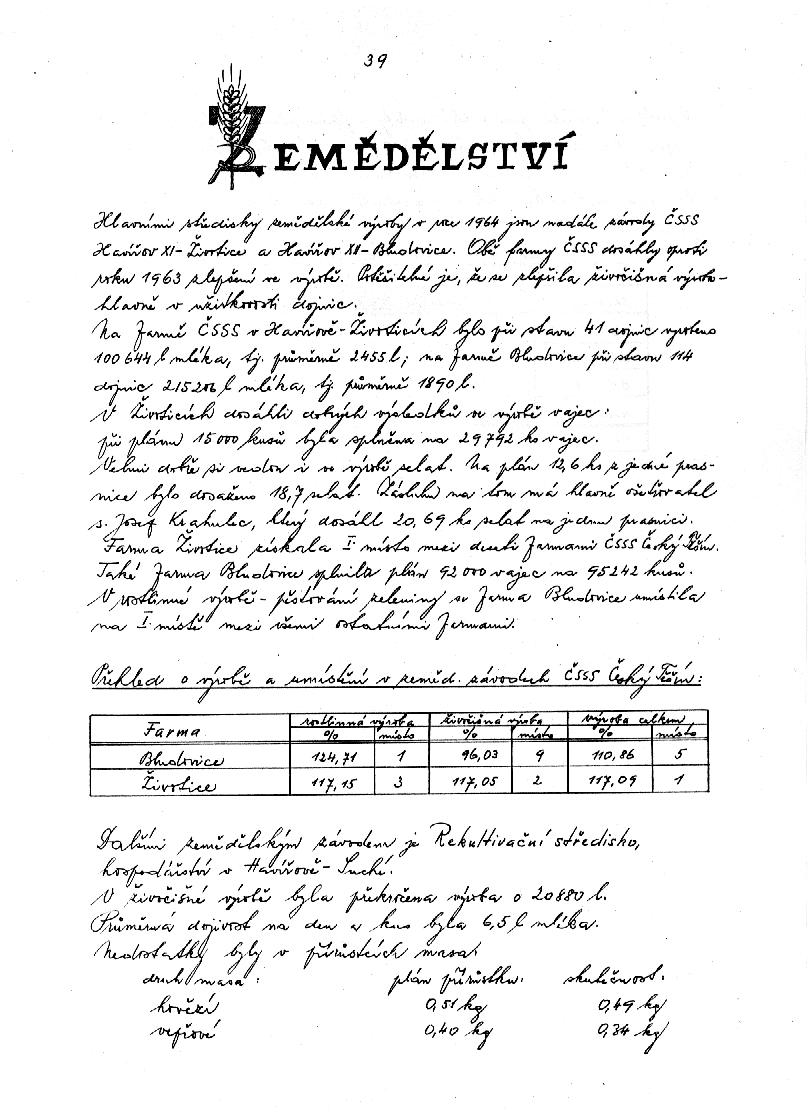 39
ZEMĚDĚLSTVÍ
Hlavními středisky zemědělské výroby v roce 1964 jsou nadále závody ČSSS
Havířov XI-Životice a Havířov XII-Bludovice. Obě farmy ČSSS dosáhly oproti
roku 1963 zlepšení ve výrobě. Potěšitelné je, že se zlepšila živočišná výroba-
hlavně v užitkovosti dojnic.
Na farmě ČSSS v Havířově-Životicích bylo při stavu 41 dojnic vyrobeno
100644 l mléka, tj. průměrně 2455 l; na farmě Bludovice při stavu 114
dojnic 215206 l mléka, tj. průměrně 1890 l.
V Životicích dosáhli dobrých výsledků ve výrobě vajec:
při plánu 15000 kusů byla splněna na 29792 ks vajec.
Velmi dobře si vedou i ve výrobě selat. Na plán 12,6 ks z jedné pras-
nice bylo dosaženo 18,7 selat. Zásluhu na tom má hlavně ošetřovatel
s. Josef Krahulec, který dosáhl 20,69 ks selat na jednu prasnici.
Farma Životice získala I. místo mezi deseti farmami ČSSS Český Těšín.
Také farma Bludovice splnila plán 92000 vajec na 95242 kusů.
V rostlinné výrobě - pěstování zeleniny se farma Bludovice umístila
na I. místě mezi všemi ostatními farmami.
Přehled o výrobě a umístění v zeměd. závodech ČSSS Český Těšín:
Farma rostlinná výroba živočišná výroba výroba celkem
% místo % místo % místo
Bludovice 124,71 1 96,03 9 110,86 5
Životice 117,15 3 117,05 2 117,09 1
Dalším zemědělským závodem je Rekultivační středisko,
hospodářství v Havířově-Suché.
V živočišné výrobě byla překročena výroba o 20880 l.
Průměrná dojivost na den a kus byla 6,5 l mléka.
Nedostatky byly v přírůstcích masa:
druh masa: plán přírůstku: skutečnost:
hovězí 0,51 kg 0,49 kg
vepřové 0,40 kg 0,34 kg